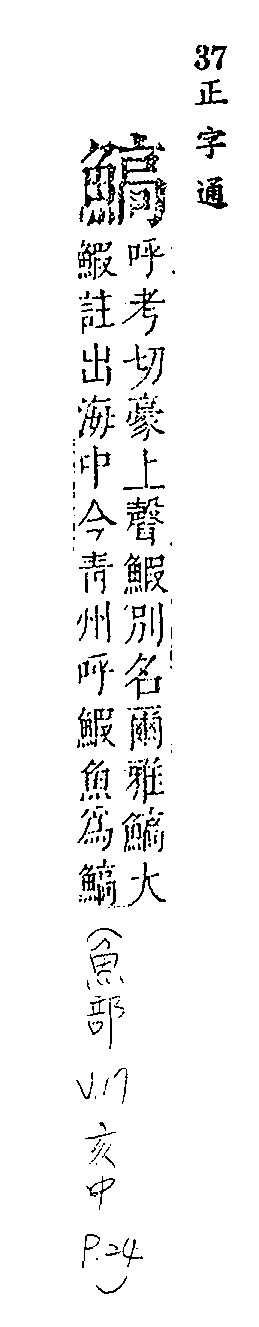 37正字通
鰝呼考切豪上聲鰕別名爾雅鰝大
鰕註出海中今青州呼鰕魚為鰝
(魚部 V.17 亥中 P.24)